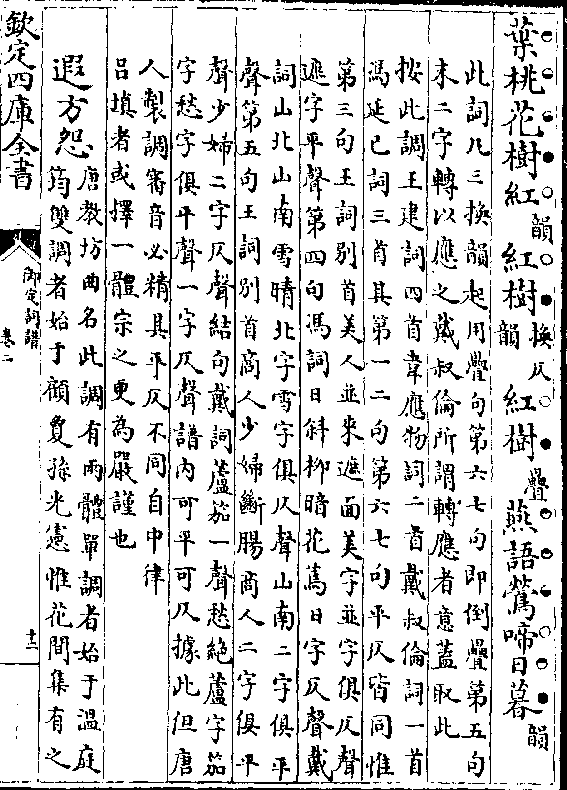 葉桃花樹紅韻紅樹換仄韻紅樹疊燕語鶯啼日暮韻
此詞凡三換韻起用疊句第六七句即倒疊第五句
末二字轉以應之戴叔倫所謂轉應者意蓋取此
按此調王建詞四首韋應物詞二首戴叔倫詞一首
馮延巳詞三首其第一二句第六七句平仄皆同惟
第三句王詞別首美人並來遮面美字並字俱仄聲
遮字平聲第四句馮詞日斜柳暗花蔫日字仄聲戴
詞山北山南雪晴北字雪字俱仄聲山南二字俱平
聲第五句王詞別首商人少婦斷腸商人二字俱平
聲少婦二字仄聲結句戴詞蘆笳一聲愁絕蘆字笳
字愁字俱平聲一字仄聲譜內可平可仄據此但唐
人製調審音必精其平仄不同自中律
呂填者或擇一體宗之更為嚴謹也
遐方怨
唐教坊曲名此調有兩體單調者始于溫庭
筠雙調者始于顧夐孫光憲惟花間集有之
欽定四庫全書
御定詞譜
卷二
十三